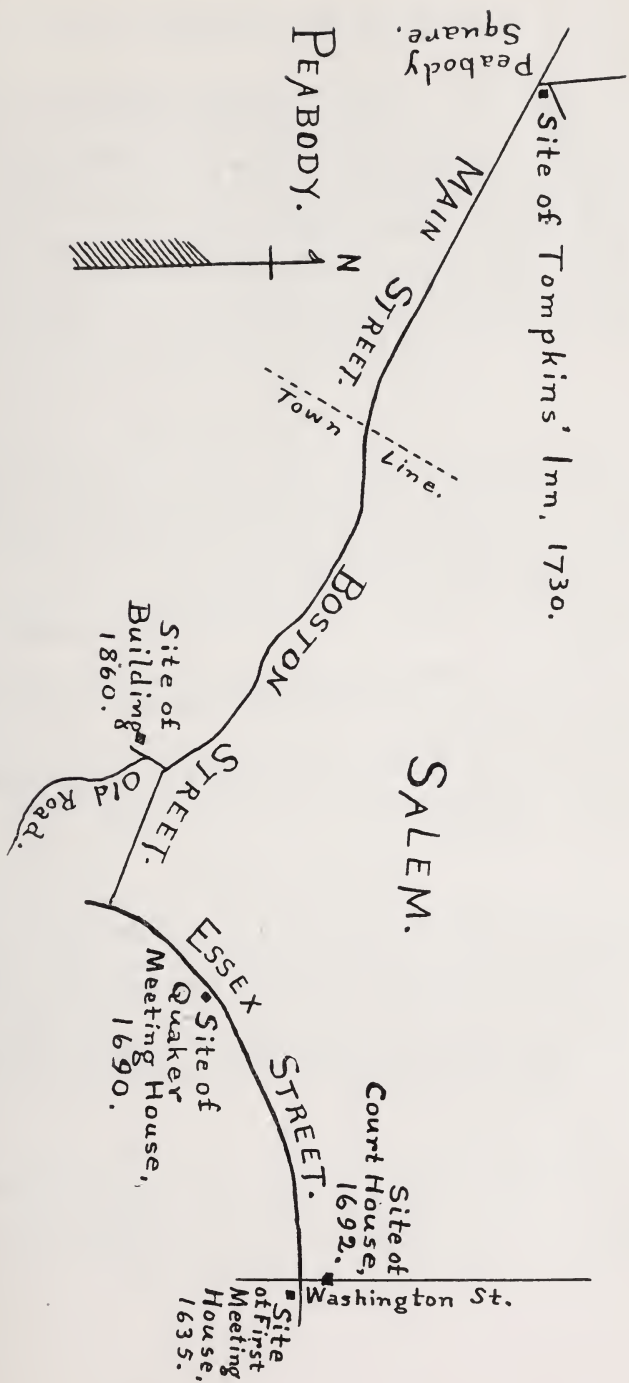 Peabody
Square.
Site of Tompkins' Inn, 1730.
PEABODY.
MAIN
STREET.
N
Town
Line.
BOSTON
STREET.
SALEM.
Site of
Building
1860.
Old Road.
ESSEX
STREET.
Site of
Quaker
Meeting House,
1690.
Site of
Court House,
1692.
Washington St.
Site
of First
Meeting
House,
1635.